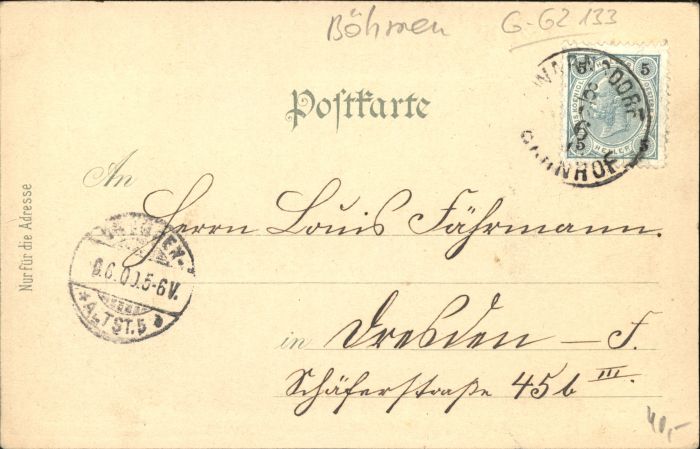 Böhmen G-GZ 133
5 5
WARNSDORF
BAHNHOF
HELLER
5 5
Postkarte
Nur für die Adresse
An
Herrn Louis Fährmann.
DRESDEN-
6.6.00.5-6V.
*ALTST.5
in Dresden – F.
Schäferstraße 45b III.
40,-